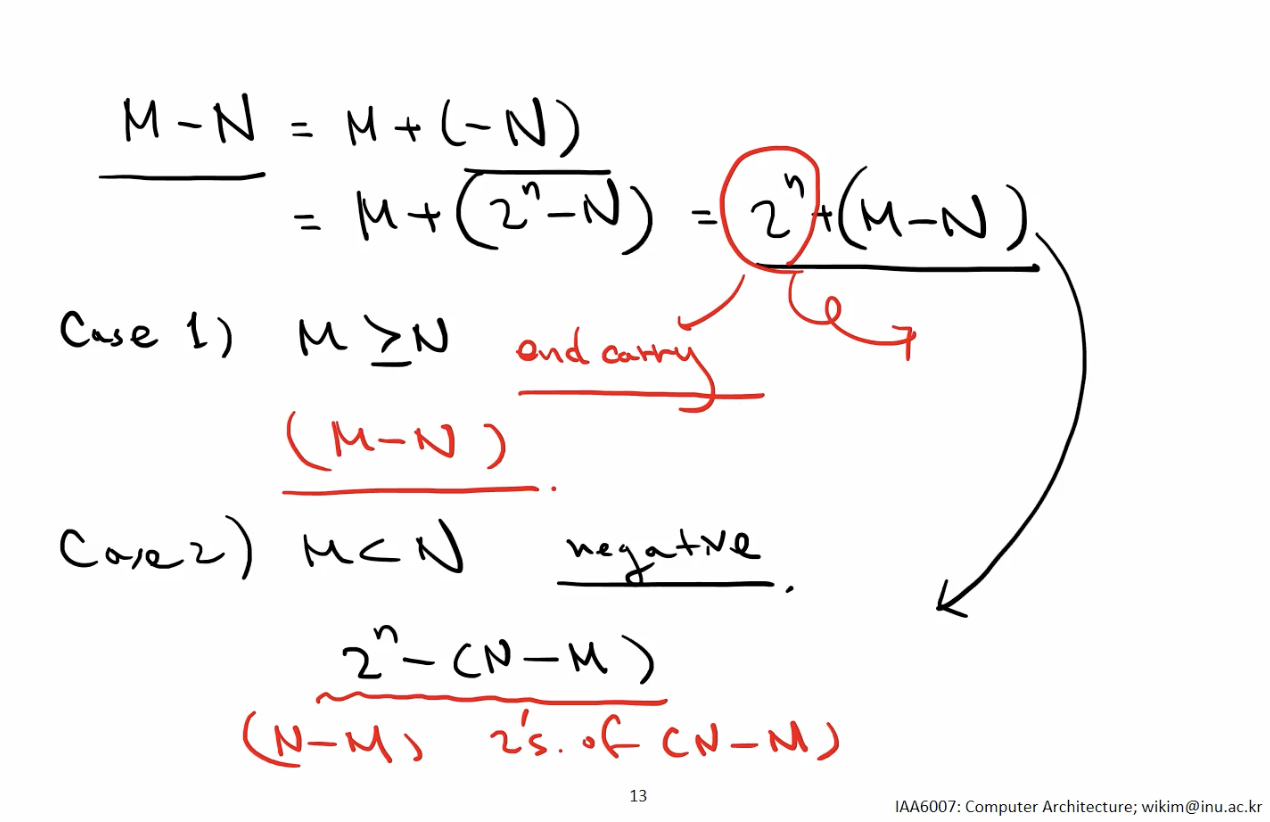 M - N = M + (-N)
= M + (2ⁿ - N) = 2ⁿ + (M - N)
Case 1) M ≥ N end carry
(M - N).
Case 2) M < N negative.
2ⁿ - (N - M)
(N - M) 2's. of (N - M)
13
IAA6007: Computer Architecture; wikim@inu.ac.kr